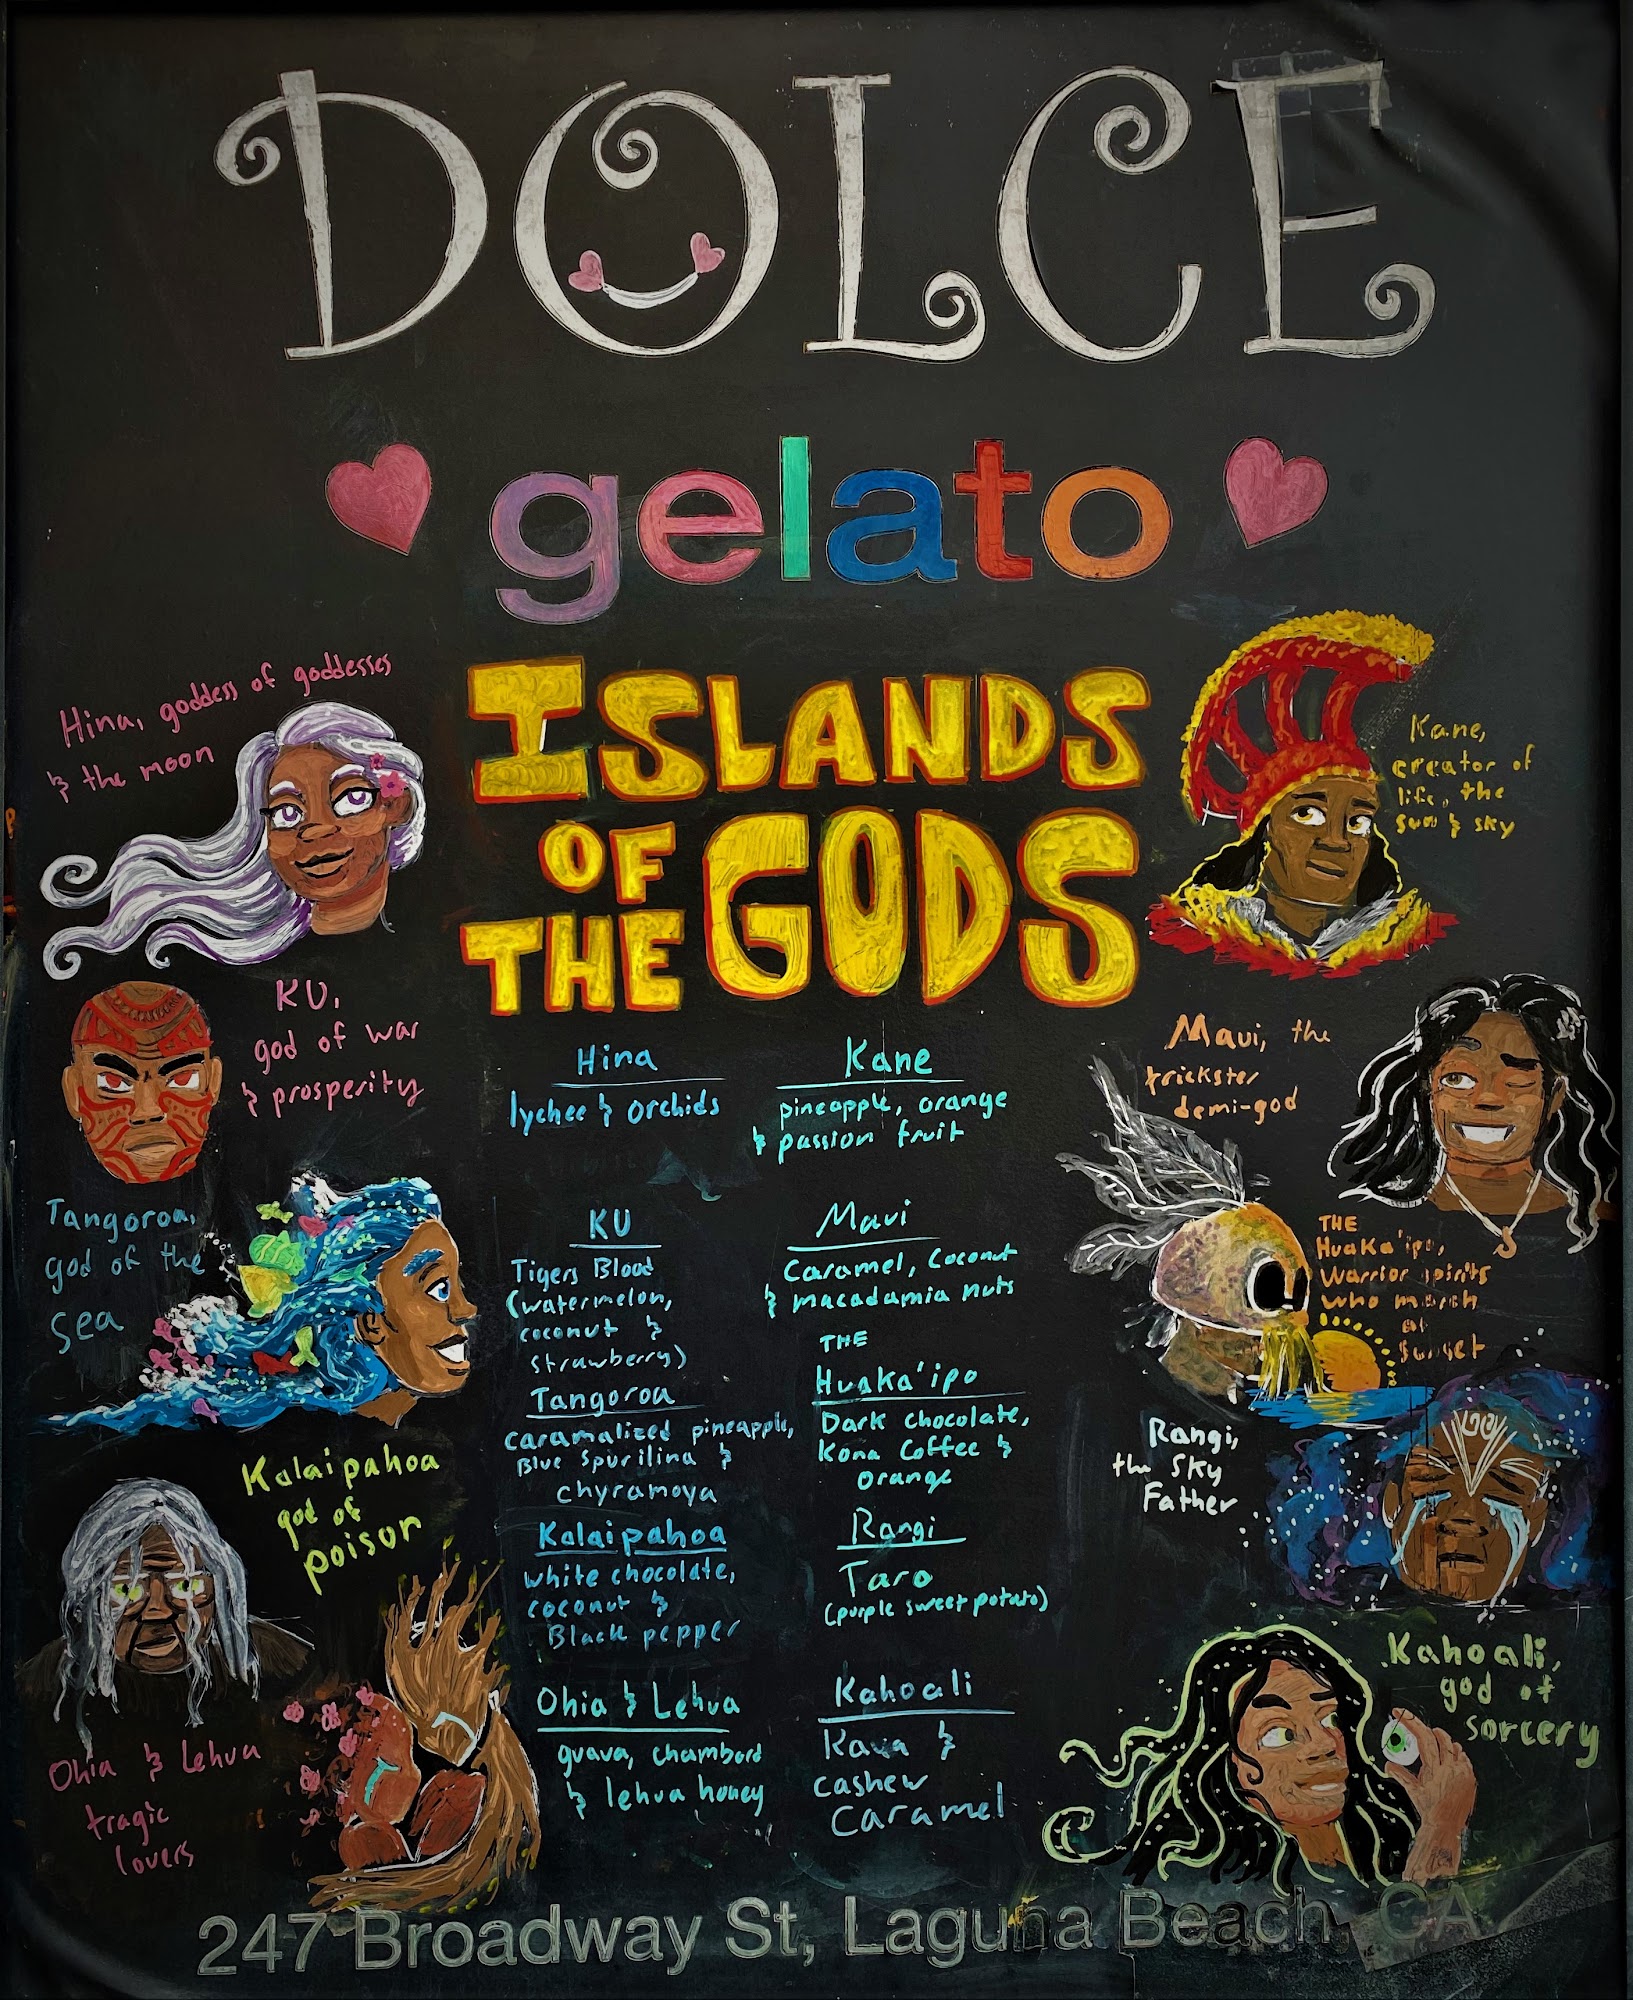 DOLCE
gelato
ISLANDS
OF
THE GODS
Hina, goddess of goddesses
& the moon
Kane,
creator of
life, the
sun & sky
KU,
god of war
& prosperity
Maui, the
trickster
demi-god
Tangoroa,
god of the
sea
THE
Huaka'ipo,
Warrior spirits
who march
at
sunset
Kalaipahoa
god of
poison
Rangi,
the Sky
Father
Ohia & Lehua
tragic
lovers
Kahoali,
god of
sorcery
Hina
lychee & orchids
Kane
pineapple, orange
& passion fruit
KU
Tigers Blood
(watermelon,
coconut &
strawberry)
Maui
Caramel, Coconut
& macadamia nuts
Tangoroa
caramalized pineapple,
Blue Spurilina &
chyramoya
THE
Huaka'ipo
Dark chocolate,
Kona Coffee &
orange
Kalaipahoa
white chocolate,
coconut &
Black pepper
Rangi
Taro
(purple sweet potato)
Ohia & Lehua
guava, chambord
& lehua honey
Kahoali
Kava &
cashew
Caramel
247 Broadway St, Laguna Beach, CA